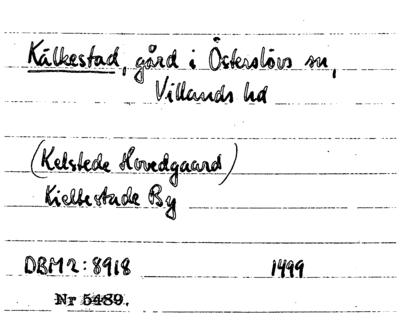 Kälkestad, gård i Österslövs sn,
Villands hd
(Kelstede Hovedgaard)
Kielkestade By
DBM 2:8918 1499
Nr 5489.